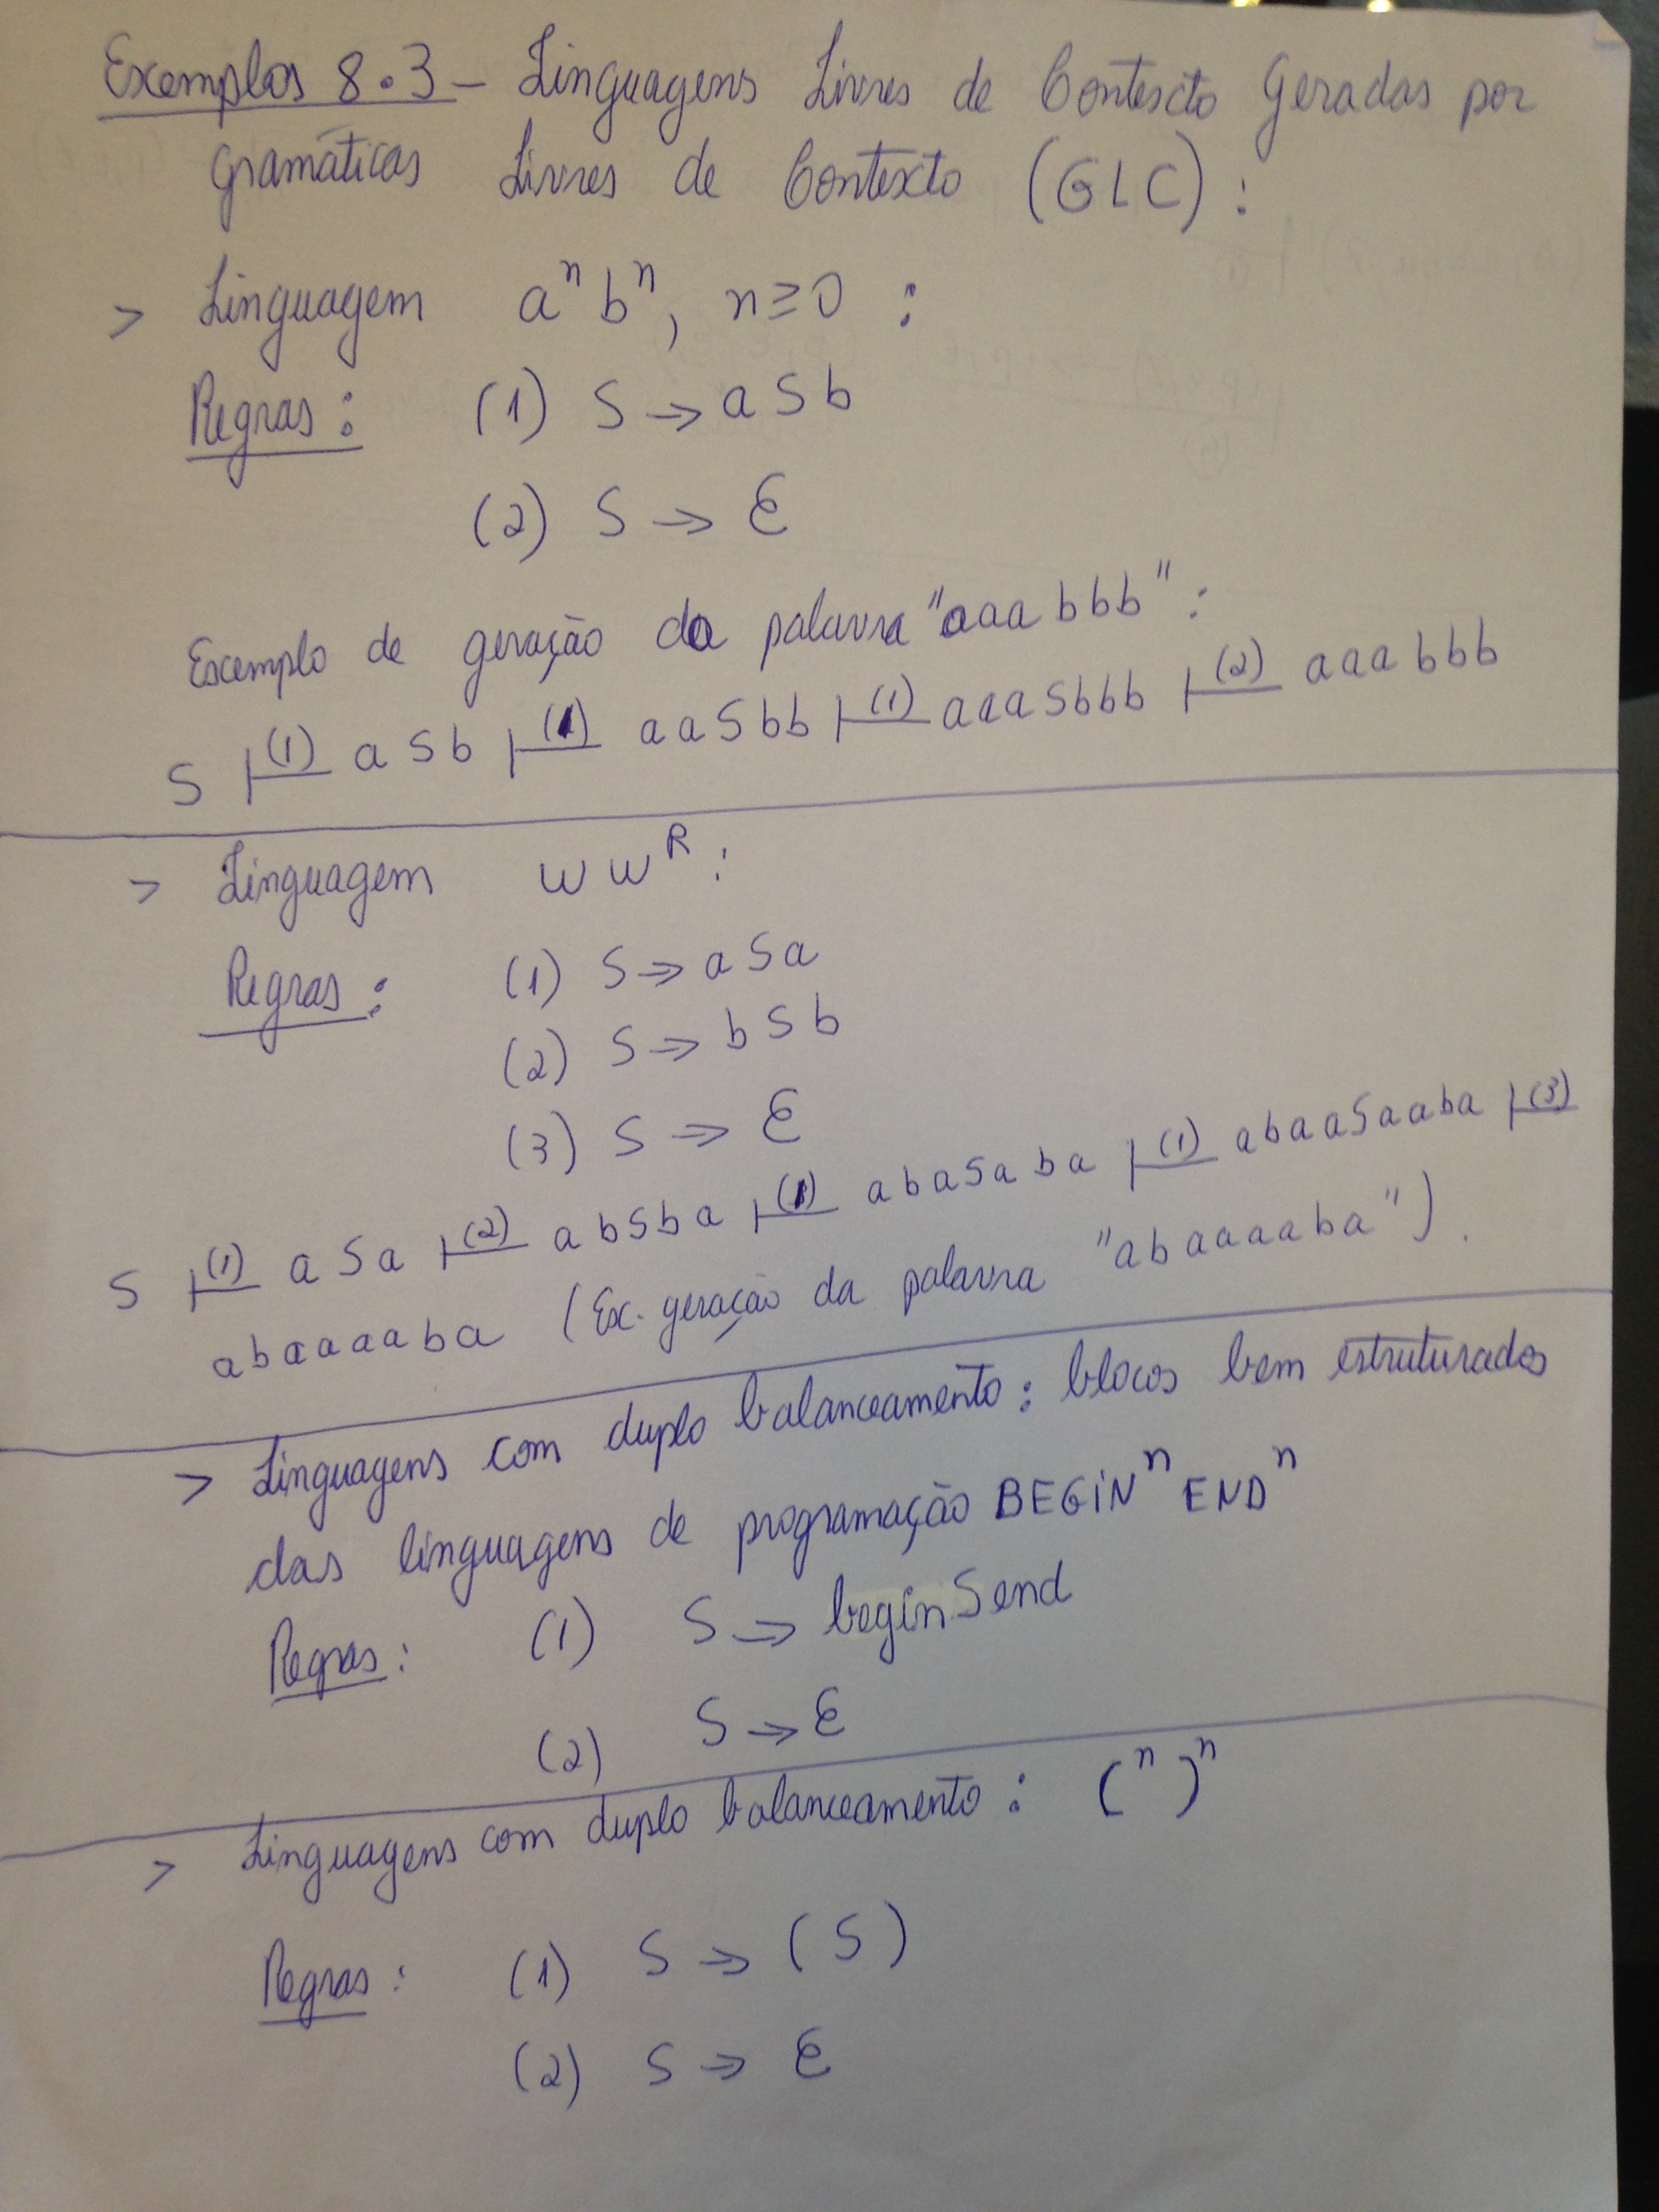 Exemplos 8.3 - Linguagens Livres de Contexto Geradas por
Gramáticas Livres de Contexto (GLC):
> Linguagem aⁿ bⁿ, n ≥ 0 :
Regras: (1) S → a S b
(2) S → ε
Exemplo de geração da palavra "aaabbb":
S |-(1) a S b |-(1) aaSbb |-(1) aaaSbbb |-(2) aaabbb
> Linguagem w wᴿ:
Regras: (1) S → a S a
(2) S → b S b
(3) S → ε
S |-(1) a S a |-(2) abSba |-(1) abaSaba |-(1) abaaSaaba |-(3)
abaaaaba (Ex. geração da palavra "abaaaaba").
> Linguagens com duplo balanceamento: blocos bem estruturados
das linguagens de programação BEGINⁿ ENDⁿ
Regras: (1) S → begin S end
(2) S → ε
> Linguagens com duplo balanceamento: (ⁿ )ⁿ
Regras: (1) S → (S)
(2) S → ε